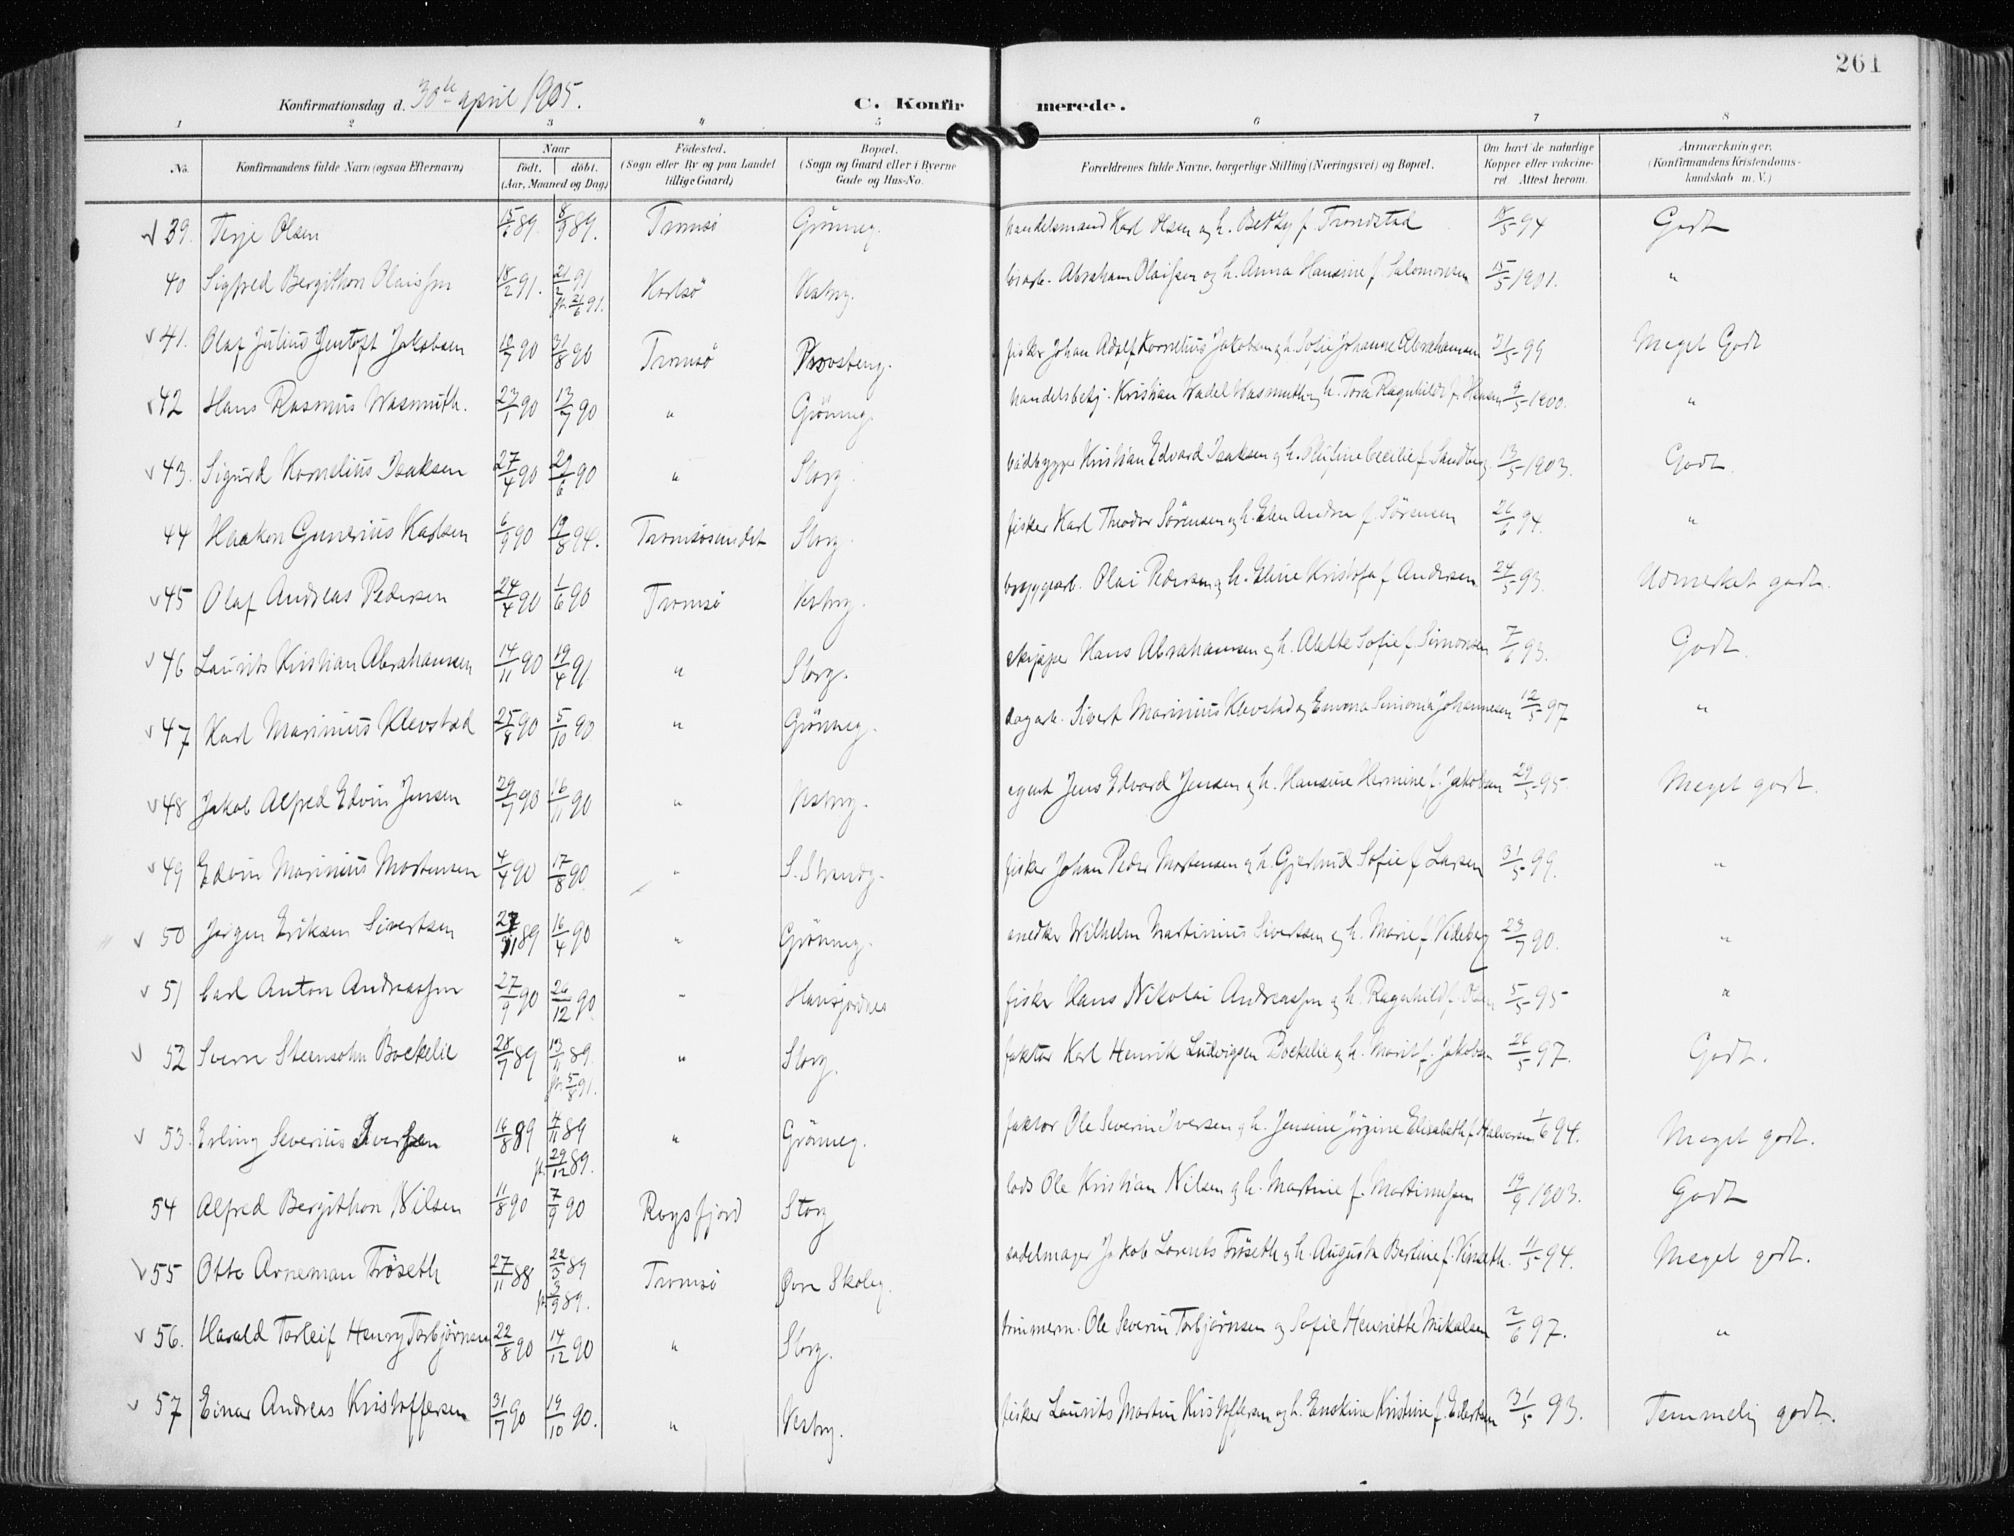 261
Konfirmationsdag d. 30te april 1905. C. Konfirmerede.
1 2 3 4 5 6 7 8
No. Konfirmandens fulde Navn (ogsaa Efternavn) Naar født. døbt. (Aar, Maaned og Dag) Fødested. (Sogn eller By og paa Landet tillige Gaard) Bopæl. (Sogn og Gaard eller i Byerne Gade og Hus-No. Forældrenes fulde Navne, borgerlige Stilling (Næringsvei) og Bopæl. Om havt de naturlige Kopper eller vakcineret. Attest herom. Anmærkninger. (Konfirmandens Kristendomskundskab m. V.)
39. Terje Olsen 15/6 89. 8/9 89. Tromsö Grönneg. handelsmand Karl Olsen og h. Betzy f. Trondstad 18/5 94 Godt
40 Sigfred Bergithon Olaissen 18/2 91. 21/2 91 pr. 21/6 91. Karlsö Vestrg. Abraham Olaissen og h. Anna Hansine f. Salomonsen 15/5 1901. "
41. Olaf Julius Gentoft Jakobsen 10/7 90 31/8 90 Tromsö Provsteng. fisker Johan Adolf Kornelius Jakobsen og h. Sofie Johanne Abrahamsen 31/5 99 Meget Godt
42 Hans Rasmus Wasmuth. 23/1 90 13/7 90 " Grönneg. handelsbetj. Kristian Wadel Wasmuth og h. Tora Ragnhild f. Hansen 9/5 1900. "
43. Sigurd Kornelius Isaksen 27/4 90 29/6 90 " Storg. bådbygger Kristian Edvard Isaksen og h. Cecilie f. Sandberg. 13/5 1903. Godt.
44 Haakon Gunerius Karlsen 6/9 90 19/8 94. Tromsösundet Storg. fisker Karl Theodor Sörensen og h. Elen Andrea f. Sörensen 26/6 94. "
45 Olaf Andreas Pedersen 24/4 90 1/6 90 Tromsö Vestrg. bryggearb. Olai Pedersen og h. Eline Kristofa f. Andersen 24/5 93. Udmerket godt.
46 Laurits Kristian Abrahamsen 14/11 90 19/4 91. " Storg. skipper Hans Abrahamsen og h. Alette Sofie f. Simonsen 7/6 93. Godt.
47 Karl Marinius Klevstad 25/8 90 5/10 90 " Grönneg. dagarb. Sivert Marinius Klevstad og Emma Simonia Johannesen 12/5 97 "
48 Jakob Alfred Edvin Jensen 29/7 90 16/11 90 " Vestrg. agent Jens Edvard Jensen og h. Hansine Hermine f. Jakobsen 29/5 95. Meget godt.
49 Edvin Marinius Mortensen 4/4 90 17/8 90. " S. Strandg. fisker Johan Peder Mortensen og h. Gjertrud Sofie f. Larsen 31/5 99. "
50 Jörgen Eriksen Sivertsen 27/11 89 16/4 90 " Grönneg. snedker Wilhelm Martinius Sivertsen og h. Marie f. Videberg 23/7 90. "
51 Carl Anton Andreassen 27/9 90 26/12 90. " Hansjordnes fisker Hans Nikolai Andreassen og h. Ragnhild f. Olsen 5/5 95 "
52 Sverre Steensohn Boekelie 28/7 89 13/11 89. pr. 5/8 91. " Storg. faktor Karl Henrik Ludvigsen Boekelie og h. Marit f. Jakobsen 26/5 97. Godt.
53. Erling Severius Iversen 16/8 89 4/11 89 pr. 29/12 89. " Grönneg. faktor Ole Severin Iversen og h. Jensine Jörgine Elisabeth f. Halvorsen 1/6 94. Meget godt.
54 Alfred Bergithon Nilsen 11/8 90 7/9 90 Røysfjord Storg lods Ole Kristian Nilsen og h. Martine f. Martinussen 19/9 1903. Godt
55 Otto Arneman Fröseth 27/11 88 22/3 89 pr. 3/9 89. Tromsö Øvre Skoleg. sadelmager Jakob Lorents Fröseth og h. Augusta Berline f. Vinseth. 11/5 94. Meget godt.
56. Harald Torleif Henry Torbjörnsen 22/8 90 14/12 90 " Storg. tömmerm. Ole Severin Torbjörnsen og Sofie Henriette Mikalsen 2/6 97. "
57 Einar Andreas Kristoffersen 31/7 90 19/10 90. " Vestrg. fisker Laurits Martin Kristoffersen og h. Enskine Kristine f. Edertsen 31/5 93. Temmelig godt.